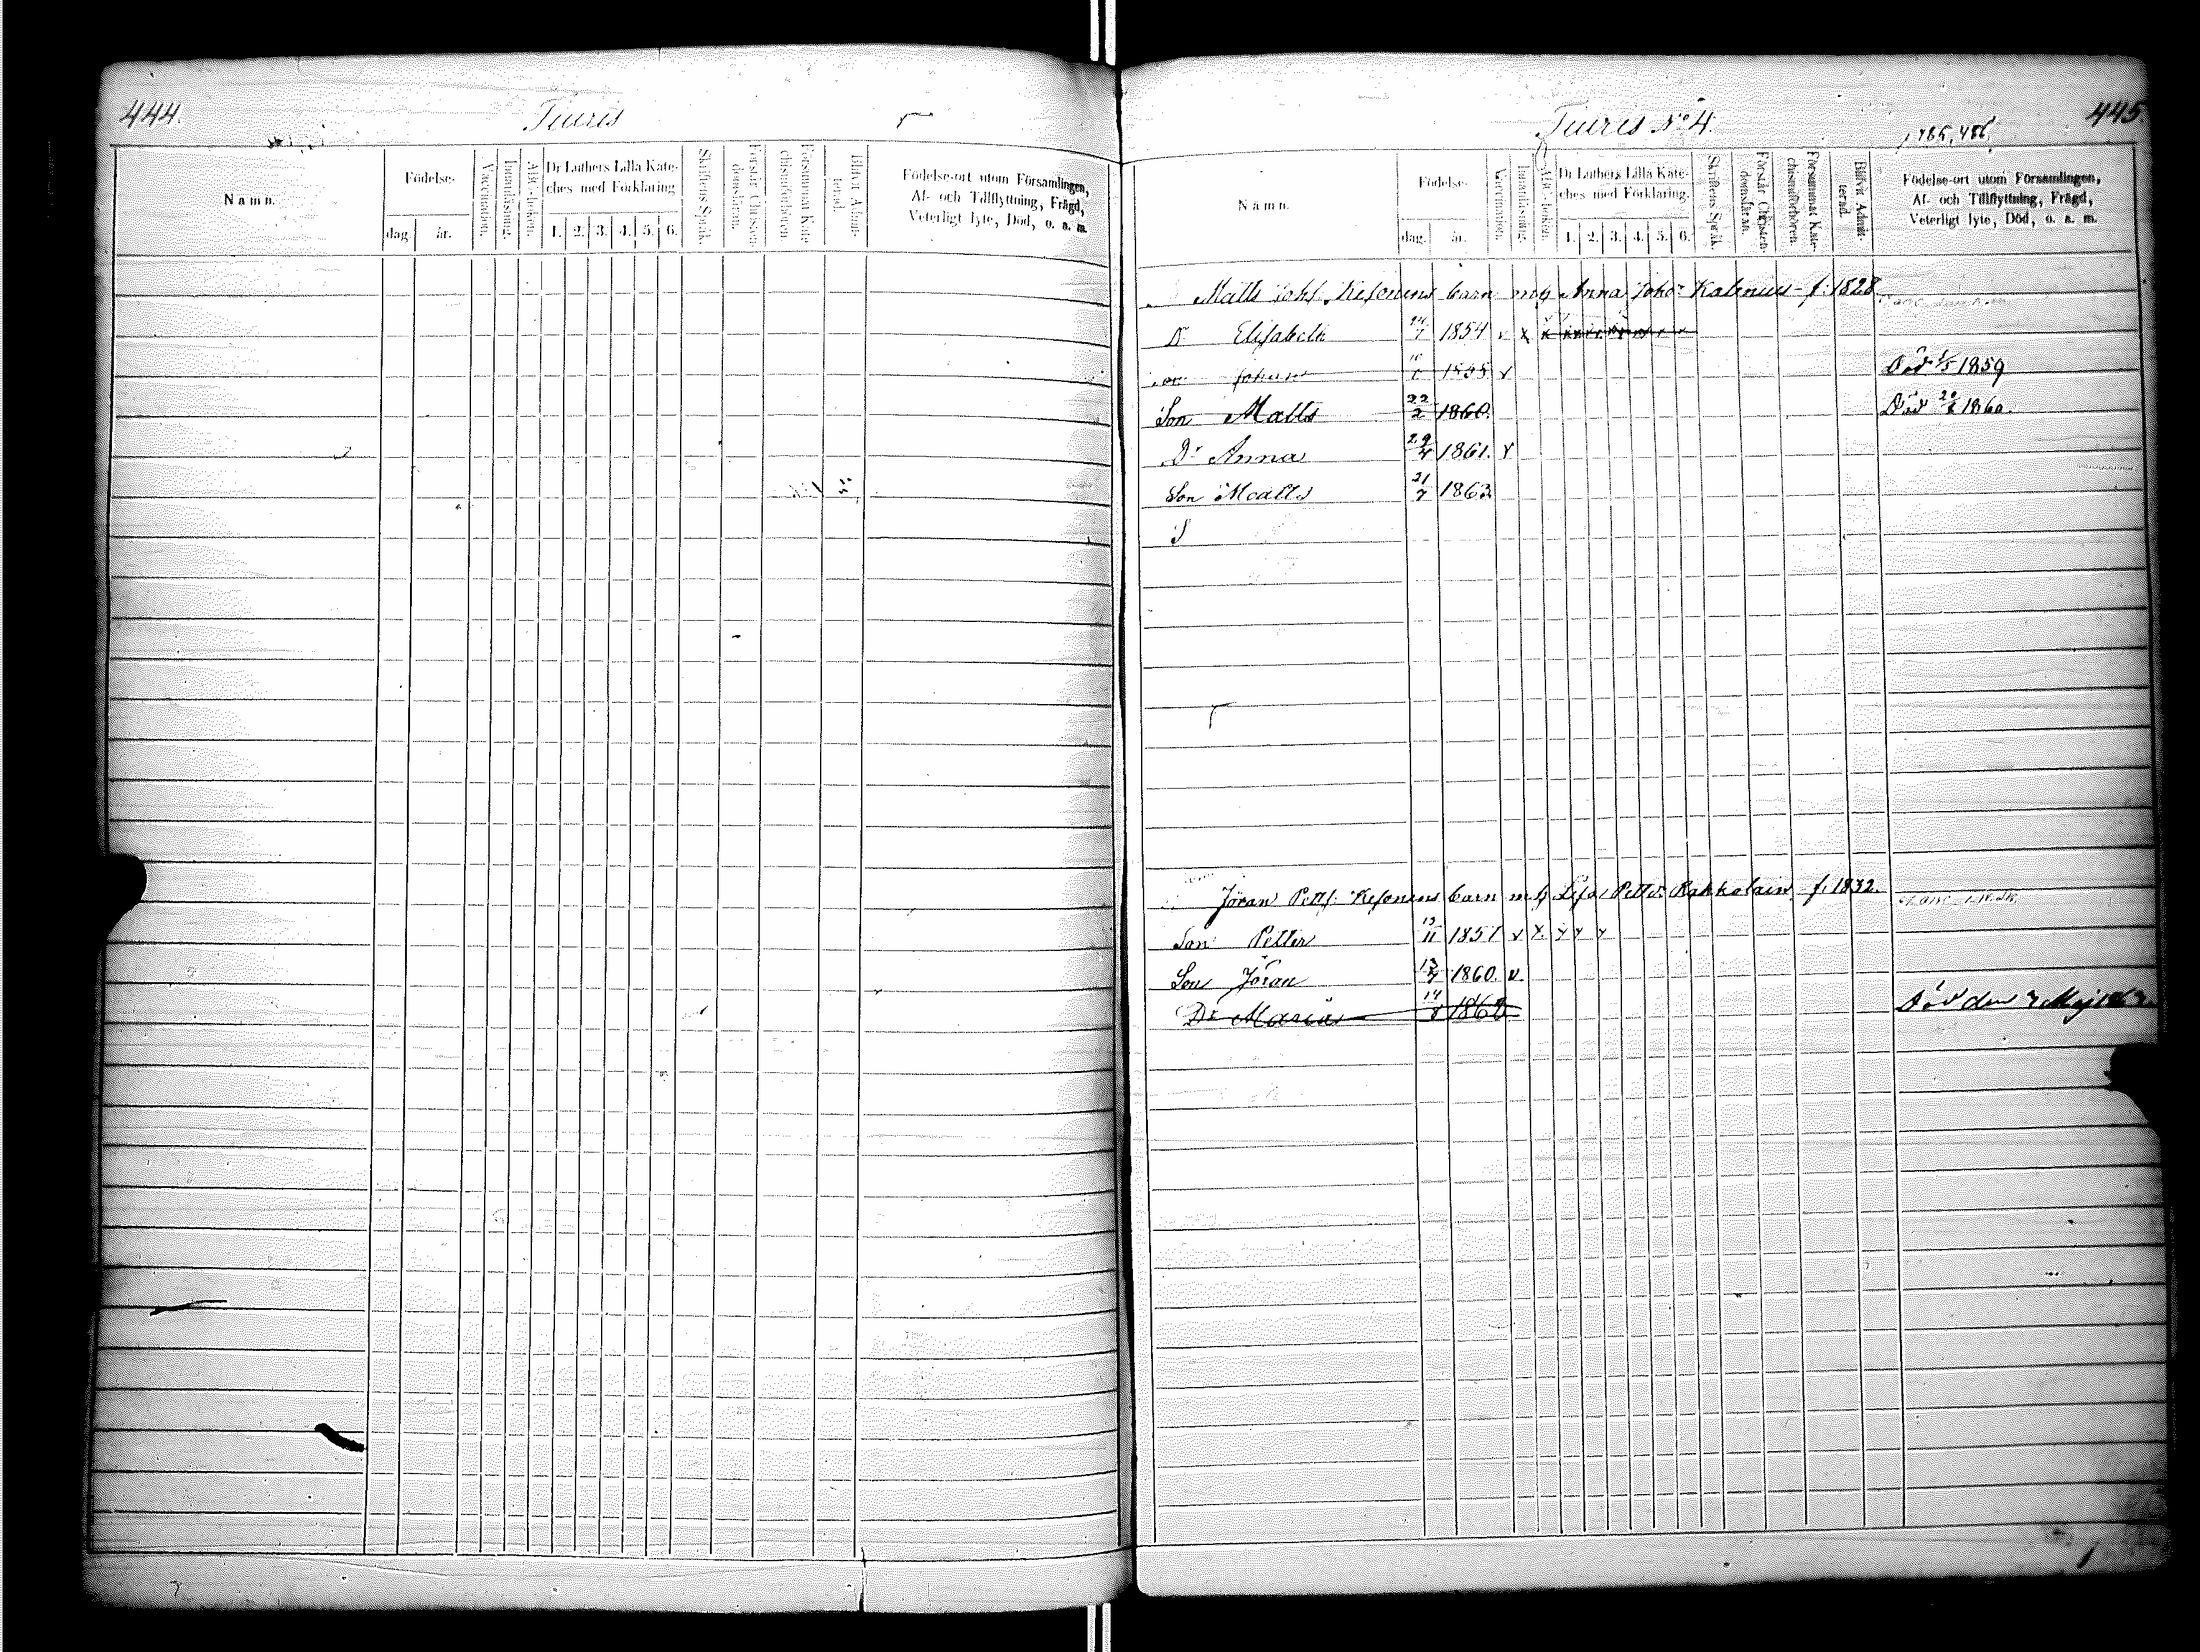 444.
Tiuris
Namn.
Födelse-
dag.
år.
Vaccination.
Innanläsning.
ABC-boken.
Dr Luthers Lilla Kate-
ches med Förklaring
1. 2. 3. 4. 5. 6.
Skriftens Språk.
Förstår Christen-
domsläran.
Försummat Kate-
chismiförhören.
Blifvit Admit-
terad.
Födelse-ort utom Församlingen,
Af- och Tillflyttning, Frägd,
Veterligt lyte, Död, o. a. m.
Tiuris No 4.
445
485, 486.
Namn.
Födelse-
dag.
år.
Vaccination.
Innanläsning.
ABC-boken.
Dr Luthers Lilla Kate-
ches med Förklaring.
1. 2. 3. 4. 5. 6.
Skriftens Språk.
Förstår Christen-
domsläran.
Försummat Kate-
chismiförhören.
Blifvit Admit-
terad.
Födelse-ort utom Församlingen,
Af- och Tillflyttning, Frägd,
Veterligt lyte, Död, o. a. m.
Matts Johf. Kesonens barn m. h. Anna Johdr f. 1828
Dr Elisabeth 1854
Son Johan 1858 Död 1/5 1859
Son Matts 22/2 1860. Död 1860.
Dr Anna 29/4 1861.
Son Matts 21/7 1863
S
Jöran Pettf. Kesonens barn m. h. Lisa Pettdr Rakkolain f. 1832.
Son Petter 13/11 1851
Son Jöran 1860.
Dr Maria 14 Död den 7 Maj